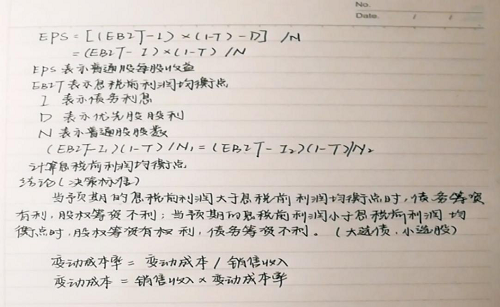 No.
Date.
EPS = [(EBIT-I) × (1-T) - D] /N
= (EBIT- I) × (1-T) /N
EPS 表示普通股每股收益
EBIT 表示息税前利润均衡点
I 表示债务利息
D 表示优先股股利
N 表示普通股股数
(EBIT-I₁)(1-T)/N₁ = (EBIT-I₂)(1-T)/N₂
计算息税前利润均衡点
结论(决策标准)
当预期的息税前利润大于息税前利润均衡点时,债务筹资
有利,股权筹资不利;当预期的息税前利润小于息税前利润均
衡点时,股权筹资有权利,债务筹资不利。(大选债,小选股)
变动成本率 = 变动成本 / 销售收入
变动成本 = 销售收入 × 变动成本率